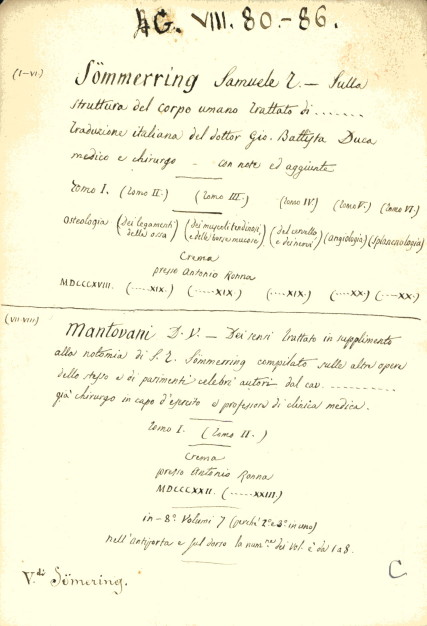 AG. VIII. 80.-86.
(I-VI)
Sömmerring Samuele T. — Sulla
struttura del corpo umano trattato di .......
traduzione italiana del dottor Gio. Battista Duca
medico e chirurgo - con note ed aggiunte
Tomo I. (tomo II.) (tomo III.) (tomo IV.) (tomo V.) (tomo VI.)
Osteologia (dei legamenti della ossa) (dei muscoli tendinosi, e delle borse mucose) (del cervello e dei nervi) (angiologia) (splancnologia)
Crema
presso Antonio Ronna
MDCCCXVIII. (.....XIX.) (......XIX.) (.....XIX.) (....XX..) (...XX..)
(VII-VIII)
Mantovani D. V. — Dei sensi trattato in supplimento
alla notomia di S. T. Sömmerring compilato sulle altre opere
dello stesso e di parimenti celebri autori dal cav. ..........
già chirurgo in capo d'esercito e professore di clinica medica.
Tomo I. (tomo II.)
Crema
presso Antonio Ronna
MDCCCXXII. (.....XXIII)
in-8° Volumi 7 (perchè 2° e 3° in uno)
nell'antiporta e sul dorso la num.ne dei vol. è da 1 a 8.
V.di Sömering.
C